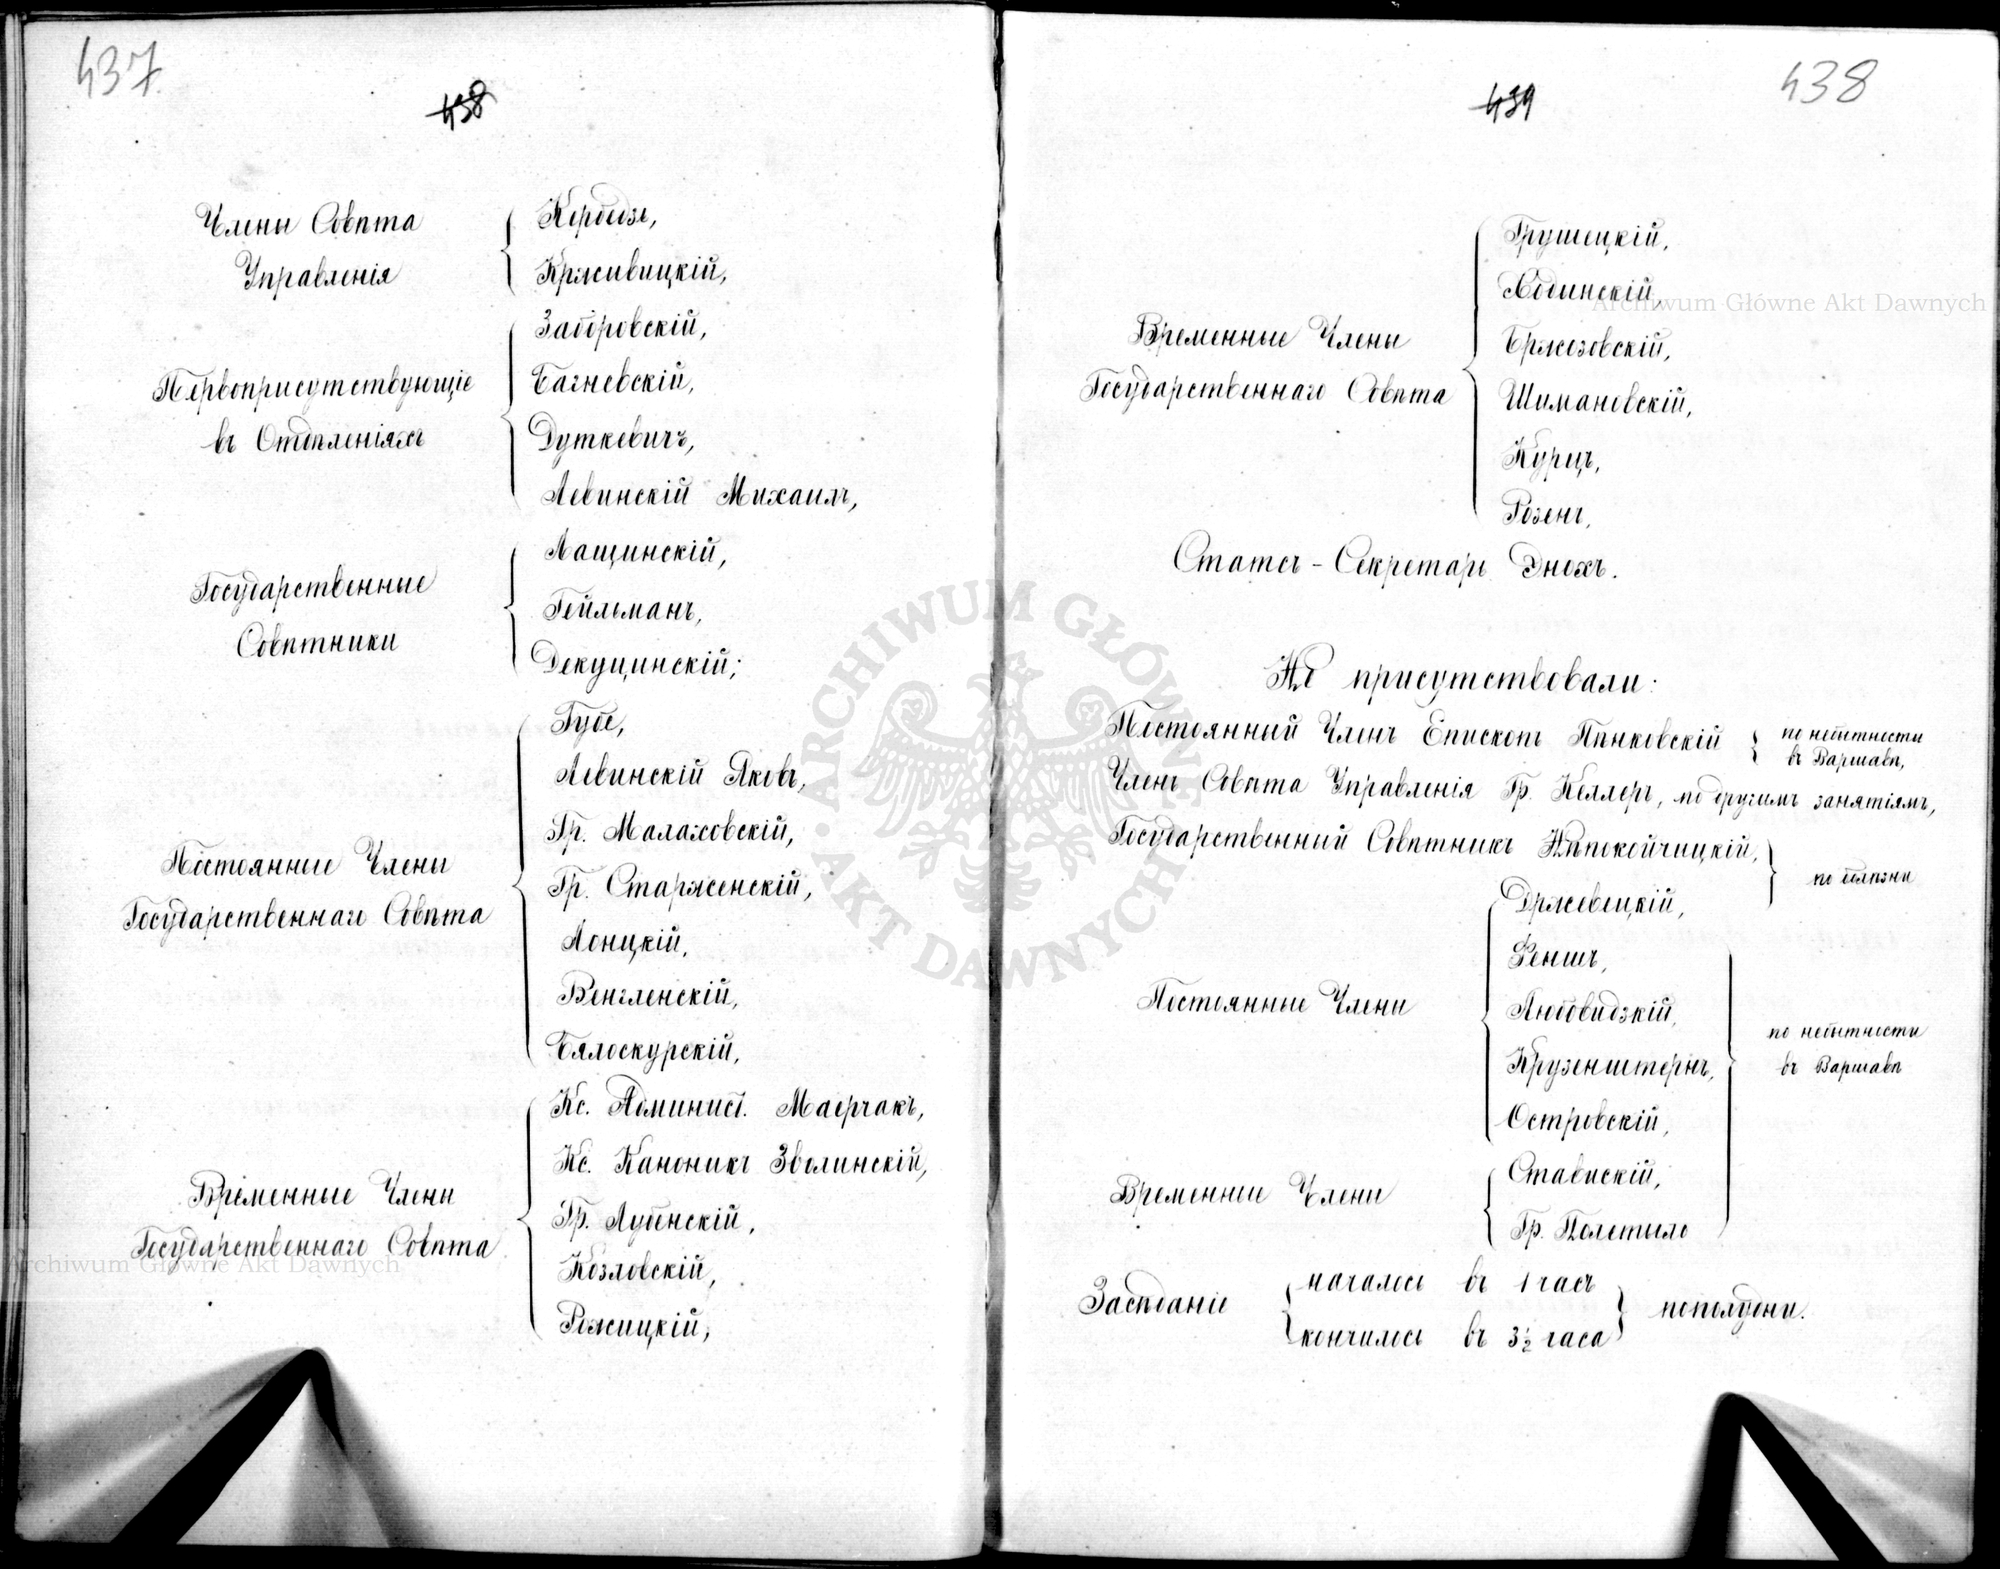 437.
438
Члены Совѣта
Управленія
Кербедзъ,
Крживицкій,
Первоприсутствующіе
въ Отдѣленіяхъ
Заборовскій,
Багневскій,
Дуткевичъ,
Левинскій Михаилъ,
Государственные
Совѣтники
Лащинскій,
Гейльманъ,
Декуцинскій;
Постоянные Члены
Государственнаго Совѣта
Губе,
Левинскій Яковъ,
Гр. Малаховскій,
Гр. Старженскій,
Лонцкій,
Венгленскій,
Бялоскурскій,
Временные Члены
Государственнаго Совѣта
Кс. Админист. Маерчакъ,
Кс. Каноникъ Зволинскій,
Гр. Лубенскій,
Козловскій,
Ржицкій,
438
439
Временные Члены
Государственнаго Совѣта
Грушецкій,
Ходынскій,
Бржозовскій,
Шимановскій,
Курцъ,
Розенъ,
Статсъ-Секретарь Энохъ.
Не присутствовали:
Постоянный Членъ Епископъ Пѣнковскій } по небытности
въ Варшавѣ,
Членъ Совѣта Управленія Гр. Келлеръ, по другимъ занятіямъ,
Государственный Совѣтникъ Непокойчицкій,
Држевецкій,
по болѣзни
Постоянные Члены
Феншъ,
Любовидзкій,
Крузенштернъ,
Островскій,
Временные Члены
Ставискій,
Гр. Полетыло
по небытности
въ Варшавѣ
Засѣданіе
началось въ 1 часъ
кончилось въ 3½ часа
пополудни.
ARCHIWUM GŁÓWNE AKT DAWNYCH
Archiwum Główne Akt Dawnych
Archiwum Główne Akt Dawnych